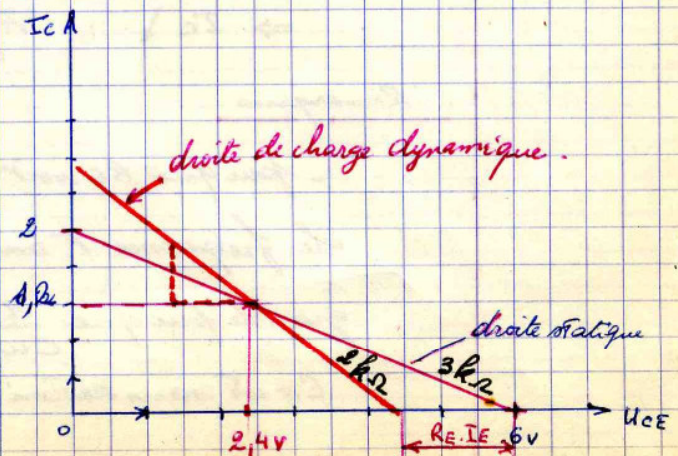 Ic A
droite de charge dynamique.
2
1,2
droite statique
2kΩ
3kΩ
0
2,4V
RE.IE
6V
UCE